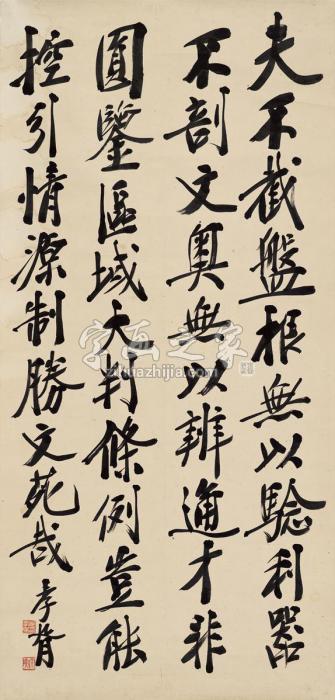 夫不截盤根無以驗利器
不剖文奧無以辨通才非
圓鑒區域大判條例豈能
控引情源制勝文苑哉 孝胥
字画之家
zihuazhijia.com